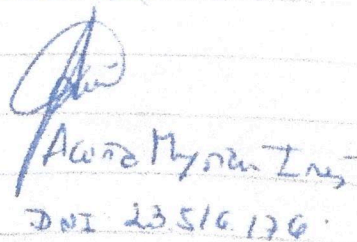 Acuña Myrian Ines
DNI 23.516.176.